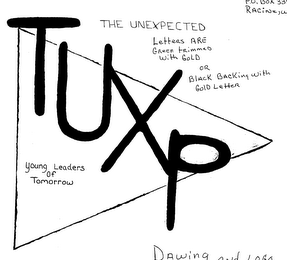 P.O. Box 33
Racine, W
THE UNEXPECTED
Letters ARE
Green trimmed
with GOLD
OR
Black Backing with
Gold Letter
TUXP
Young Leaders
Of
Tomorrow
Dawing and Logo